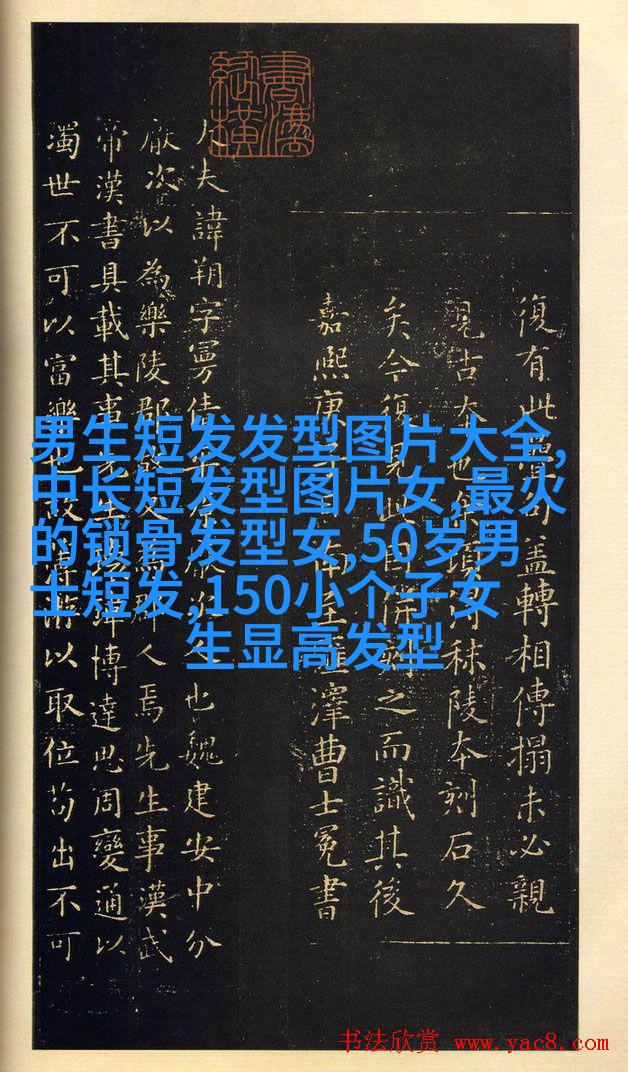 男生短发发型图片大全,
中长短发型图片女,最火
的锁骨发型女,50岁男
士短发,150小个子女
生显高发型
復有此 蓋轉相傳搨未必親
見古 也 項 秣陵本刻石久
矣今復 此 之而識其後
嘉熙庚 澤曹士冕書
大夫諱朔字曼倩 也魏建安中分
厭次以為樂陵郡 人焉先生事漢武
帝漢書具載其事 生 博達思周變通以
濁世不可以富樂也 以取位苟出不可
书法欣赏 www.yac8.com